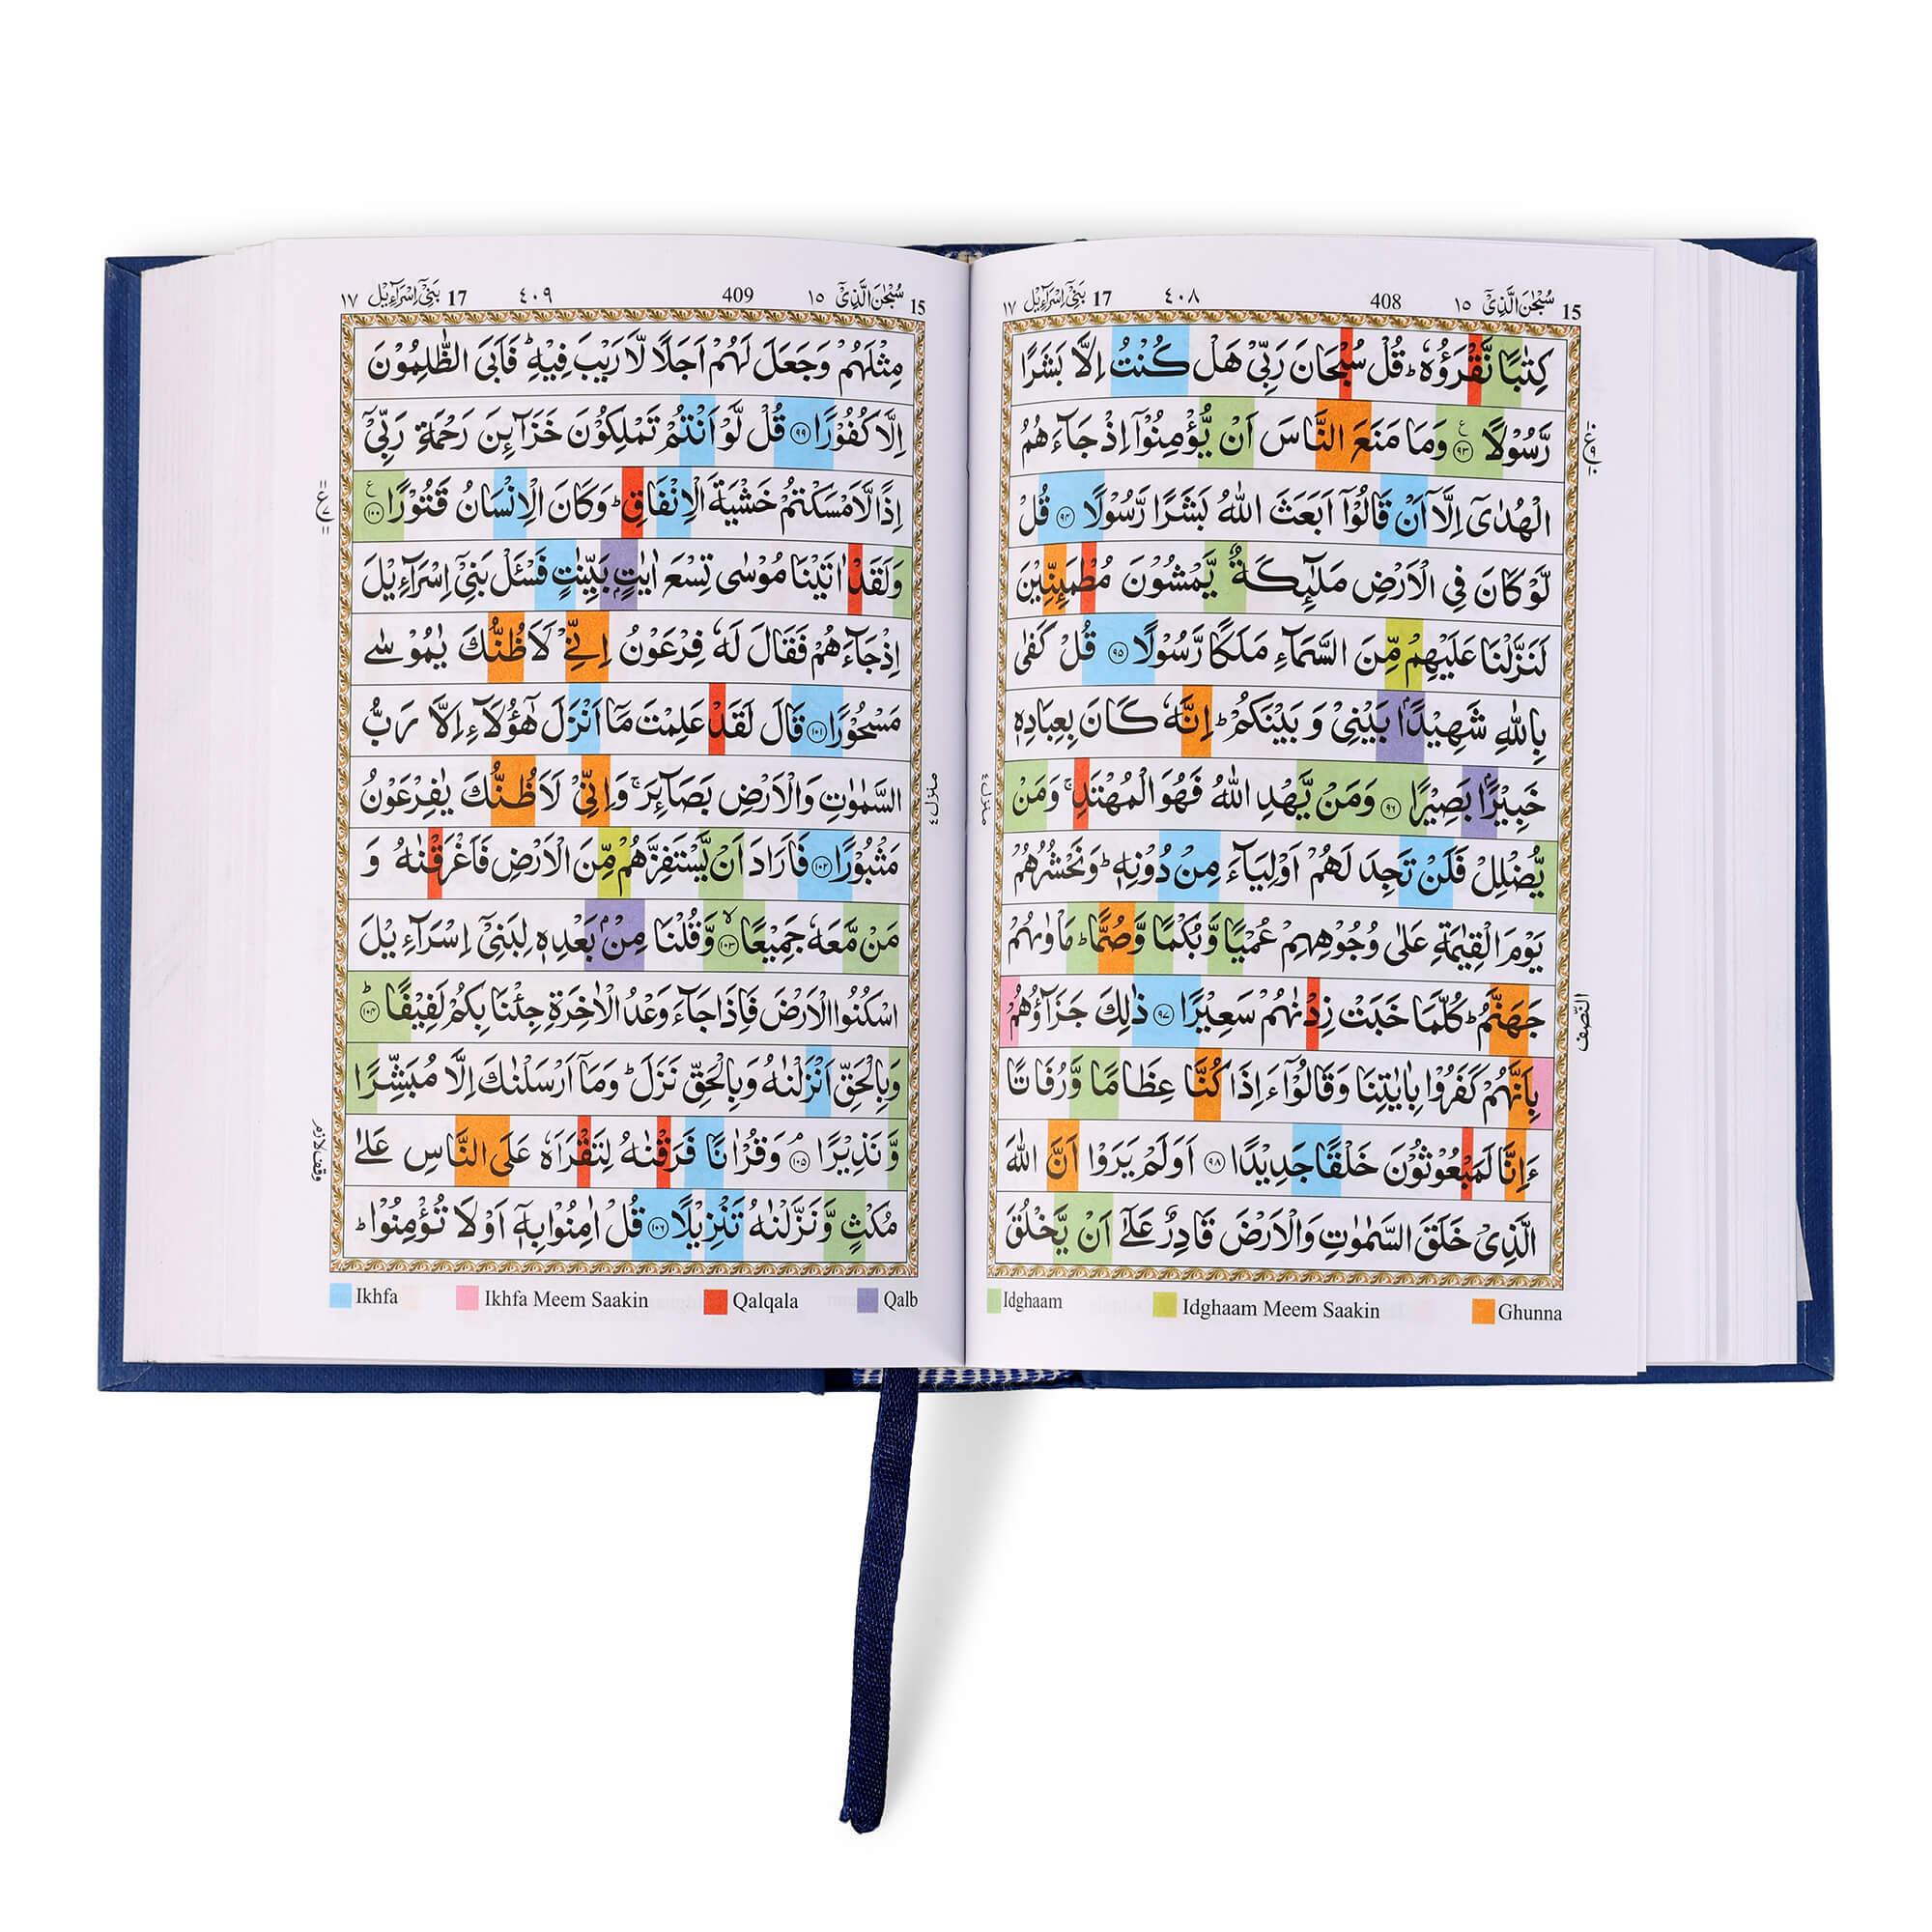 15 سُبْحٰنَ الَّذِیْۤ ١٥ 408 ٤٠٨ 17 بَنِیْۤ اِسْرَآءِیْل ١٧
كِتٰبًا نَّقْرَؤُهٗ ؕ قُلْ سُبْحَانَ رَبِّیْ هَلْ كُنْتُ اِلَّا بَشَرًا
رَّسُوْلًا ۝٩٣ وَمَا مَنَعَ النَّاسَ اَنْ یُّؤْمِنُوْۤا اِذْ جَآءَهُمُ
الْهُدٰۤی اِلَّاۤ اَنْ قَالُوْۤا اَبَعَثَ اللّٰهُ بَشَرًا رَّسُوْلًا ۝٩٤ قُلْ
لَّوْ كَانَ فِی الْاَرْضِ مَلٰٓىِٕكَةٌ یَّمْشُوْنَ مُطْمَىِٕنِّیْنَ
لَنَزَّلْنَا عَلَیْهِمْ مِّنَ السَّمَآءِ مَلَكًا رَّسُوْلًا ۝٩٥ قُلْ كَفٰی
بِاللّٰهِ شَهِیْدًۢا بَیْنِیْ وَ بَیْنَكُمْ ؕ اِنَّهٗ كَانَ بِعِبَادِهٖ
خَبِیْرًۢا بَصِیْرًا ۝٩٦ وَمَنْ یَّهْدِ اللّٰهُ فَهُوَ الْمُهْتَدِ ۚ وَمَنْ
یُّضْلِلْ فَلَنْ تَجِدَ لَهُمْ اَوْلِیَآءَ مِنْ دُوْنِهٖ ؕ وَنَحْشُرُهُمْ
یَوْمَ الْقِیٰمَةِ عَلٰی وُجُوْهِهِمْ عُمْیًا وَّ بُكْمًا وَّ صُمًّا ؕ مَاْوٰىهُمْ
جَهَنَّمُ ؕ كُلَّمَا خَبَتْ زِدْنٰهُمْ سَعِیْرًا ۝٩٧ ذٰلِكَ جَزَآؤُهُمْ
بِاَنَّهُمْ كَفَرُوْا بِاٰیٰتِنَا وَقَالُوْۤا ءَاِذَا كُنَّا عِظَامًا وَّ رُفَاتًا
ءَاِنَّا لَمَبْعُوْثُوْنَ خَلْقًا جَدِیْدًا ۝٩٨ اَوَلَمْ یَرَوْا اَنَّ اللّٰهَ
الَّذِیْ خَلَقَ السَّمٰوٰتِ وَالْاَرْضَ قَادِرٌ عَلٰۤی اَنْ یَّخْلُقَ
منزل ٤
النّصف
Idghaam Idghaam Meem Saakin Ghunna
15 سُبْحٰنَ الَّذِیْۤ ١٥ 409 ٤٠٩ 17 بَنِیْۤ اِسْرَآءِیْل ١٧
مِثْلَهُمْ وَجَعَلَ لَهُمْ اَجَلًا لَّا رَیْبَ فِیْهِ ؕ فَاَبَی الظّٰلِمُوْنَ
اِلَّا كُفُوْرًا ۝٩٩ قُلْ لَّوْ اَنْتُمْ تَمْلِكُوْنَ خَزَآىِٕنَ رَحْمَةِ رَبِّیْۤ
اِذًا لَّاَمْسَكْتُمْ خَشْیَةَ الْاِنْفَاقِ ؕ وَكَانَ الْاِنْسَانُ قَتُوْرًا ۝١٠٠
وَلَقَدْ اٰتَیْنَا مُوْسٰی تِسْعَ اٰیٰتٍۭ بَیِّنٰتٍ فَسْـَٔلْ بَنِیْۤ اِسْرَآءِیْلَ
اِذْ جَآءَهُمْ فَقَالَ لَهٗ فِرْعَوْنُ اِنِّیْ لَاَظُنُّكَ یٰمُوْسٰی
مَسْحُوْرًا ۝١٠١ قَالَ لَقَدْ عَلِمْتَ مَاۤ اَنْزَلَ هٰۤؤُلَآءِ اِلَّا رَبُّ
السَّمٰوٰتِ وَالْاَرْضِ بَصَآىِٕرَ ۚ وَاِنِّیْ لَاَظُنُّكَ یٰفِرْعَوْنُ
مَثْبُوْرًا ۝١٠٢ فَاَرَادَ اَنْ یَّسْتَفِزَّهُمْ مِّنَ الْاَرْضِ فَاَغْرَقْنٰهُ وَ
مَنْ مَّعَهٗ جَمِیْعًا ۝١٠٣ وَّ قُلْنَا مِنْۢ بَعْدِهٖ لِبَنِیْۤ اِسْرَآءِیْلَ
اسْكُنُوا الْاَرْضَ فَاِذَا جَآءَ وَعْدُ الْاٰخِرَةِ جِئْنَا بِكُمْ لَفِیْفًا ۝١٠٤ؕ
وَبِالْحَقِّ اَنْزَلْنٰهُ وَبِالْحَقِّ نَزَلَ ؕ وَمَاۤ اَرْسَلْنٰكَ اِلَّا مُبَشِّرًا
وَّ نَذِیْرًا ۝١٠٥ۘ وَقُرْاٰنًا فَرَقْنٰهُ لِتَقْرَاَهٗ عَلَی النَّاسِ عَلٰی
مُكْثٍ وَّ نَزَّلْنٰهُ تَنْزِیْلًا ۝١٠٦ قُلْ اٰمِنُوْا بِهٖۤ اَوْ لَا تُؤْمِنُوْا ؕ
منزل ٤
وقف لازم
Ikhfa Ikhfa Meem Saakin Qalqala Qalb